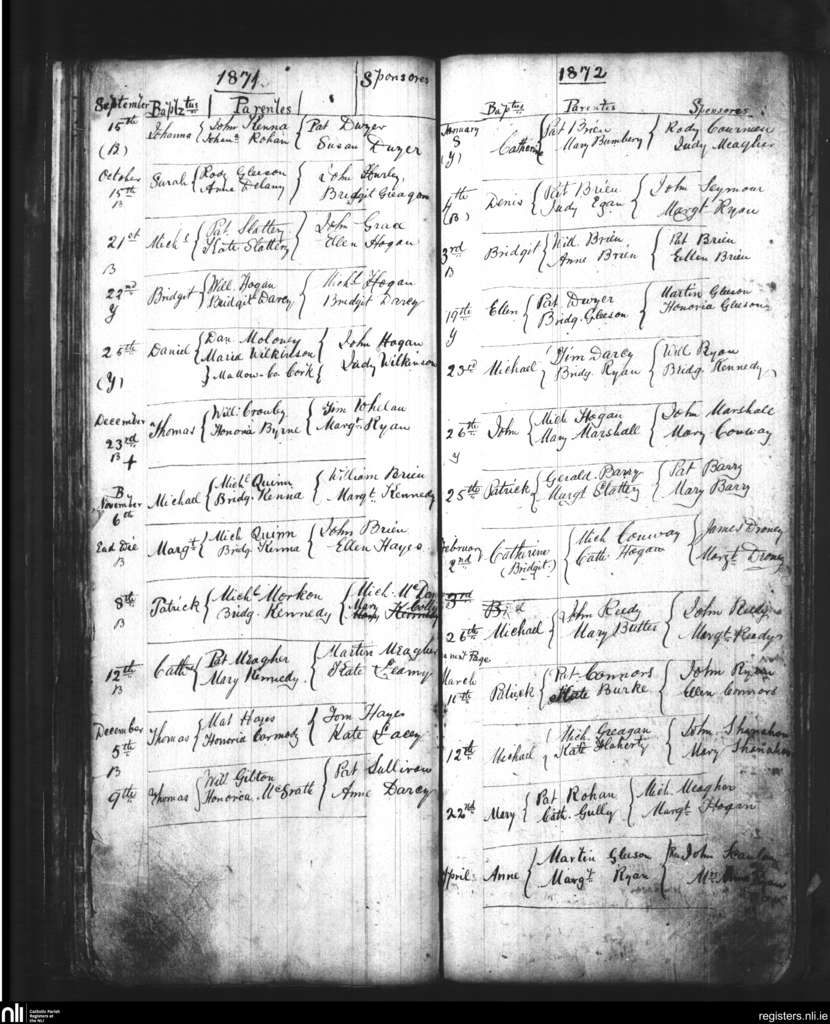 1871. Sponsores
September Baptztus Parentes
15th Johanna { John Kenna { Pat Dwyer
(B) Johana Rohan Susan Dwyer
October Sarah { Rody Gleeson { John Hurley
15th Anne Delany Bridgit Greagan
B
21st Michl { Pat. Slattery { John Grace
Kate Slattery Ellen Hogan
B
22nd Bridgit { Will. Hogan { Michl Hogan
Y Bridgit Darcy Bridgit Darcy
25th Daniel { Dan Moloney { John Hogan
Maria Wilkinson Judy Wilkinson
(Y) } Mallow - Co. Cork {
December Thomas { Will. Crouby { Tim Whelan
23rd Honoria Byrne Margt. Ryan
B +
By
November Michael { Michl Quinn { William Brien
6th Bridg. Kenna Margt. Kennedy
Eod Die Margt { Mich Quinn { John Brien
B Bridg. Kenna Ellen Hayes
8th Patrick { Michl Morkon { Mich. McDan
B Bridg. Kennedy Mary
12th Cathne { Pat Meagher { Martin Meagher
B Mary Kennedy. Kate Leamy
December Thomas { Mat Hayes { Tom Hayes
5th Honoria Carmody Kate Lacey
B
9th Thomas { Will Gilton { Pat Sullivan
Honoria McGrath Anne Darcy
1872
Baptus Parentes Sponsores
January
8 Catherin { Pat Brien { Rody Courneen
(Y) Mary Bumbery Judy Meagher
4th Denis { Pat Brien { John Seymour
(B) Judy Egan Margt Ryan
3rd Bridgit { Will Brien { Pat Brien
B Anne Brien Ellen Brien
19th Ellen { Pat Dwyer { Martin Gleeson
Y Bridg. Gleeson Honoria Gleeson
23rd Michael { Tim Darcy { Will Ryan
Bridg. Ryan Bridg. Kennedy
26th John { Mich Hogan { John Marshall
Y Mary Marshall Mary Conway
25th Patrick { Gerald Barry { Pat Barry
Margt Slattery Mary Barry
February Catherine { Mich Conway { James Droney
2nd (Bridgit) Cath. Hogan Margt. Droney
3rd
26th Michael { John Reedy { John Reedy
Mary Butler Margt. Reedy
next Page
March
11th Patrick { Pat. Connors { John Ryan
Kate Burke Ellen Connors
12th Michael { Mich. Greagan { John Shanahan
Kate Flaherty Mary Shanahan
22nd Mary { Pat Rohan { Mich. Meagher
Cath. Gully Margt. Hogan
April Anne { Martin Gleeson { John Scanlan
Margt. Ryan
nli Catholic Parish Registers at the NLI
registers.nli.ie